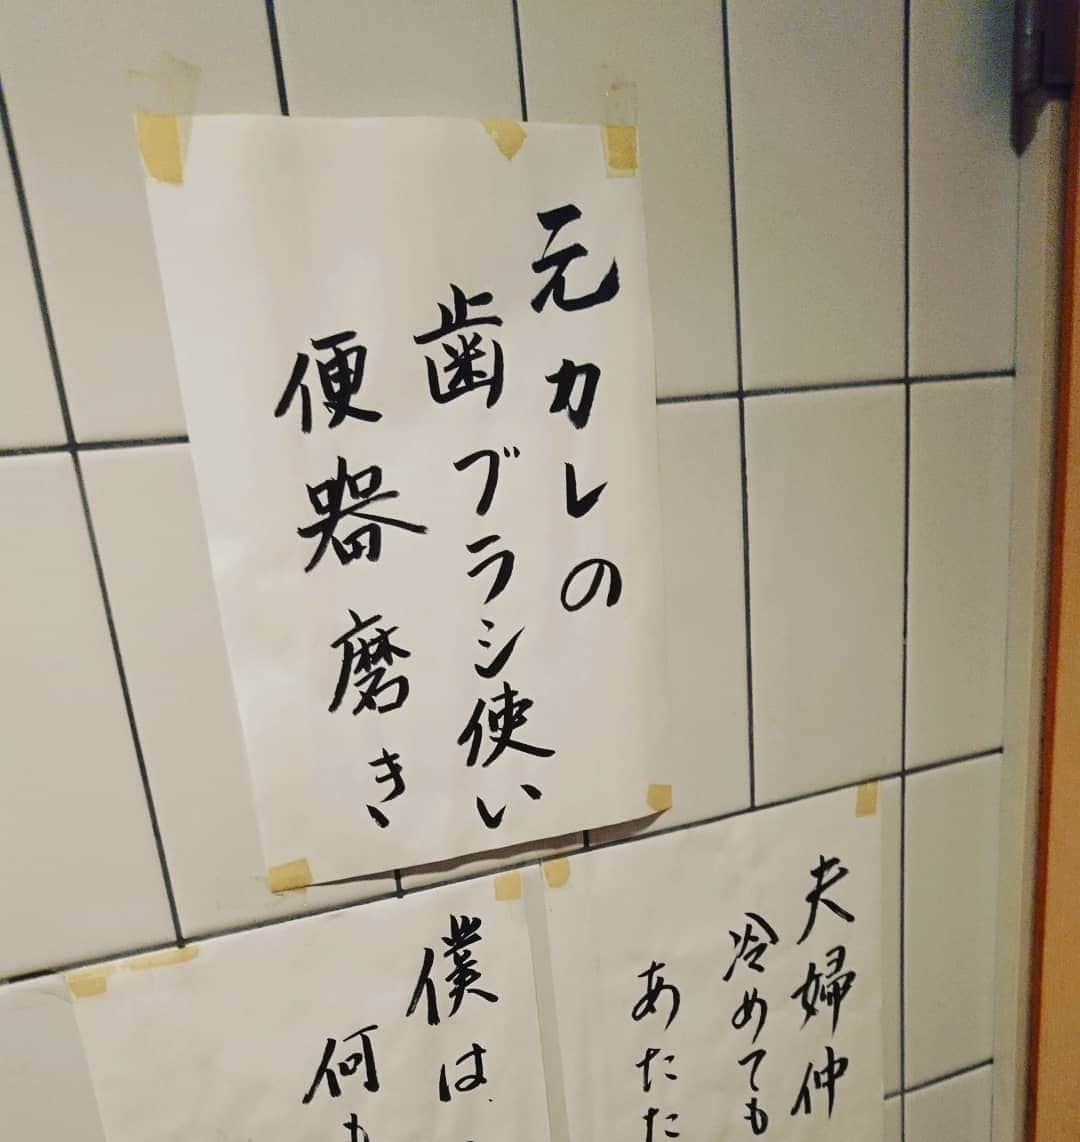 元カレの
歯ブラシ使い
便器磨き
夫婦仲
冷めても
あたた
僕は
何も